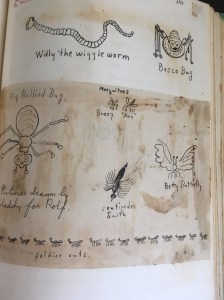 Willy the wiggle worm
Bosco Bug
Big Bellied Bug.
Mosquitoes
Buzzy "Ann"
Betty Butterfly
Centipedus
Smith
Pictures drawn by
daddy for Rolf.
Soldier ants.